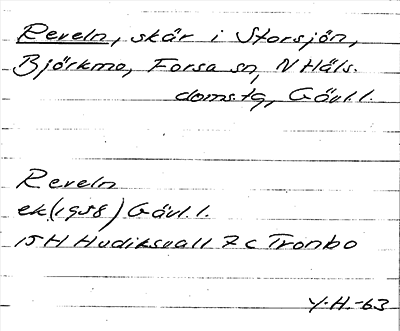 Reveln, skär i Storsjön,
Björkmo, Forsa sn, N Häls.
domstg, Gävl.l.
Reveln
ek(1958) Gävl.l.
15H Hudiksvall 7c Trombo
Y.H.-63